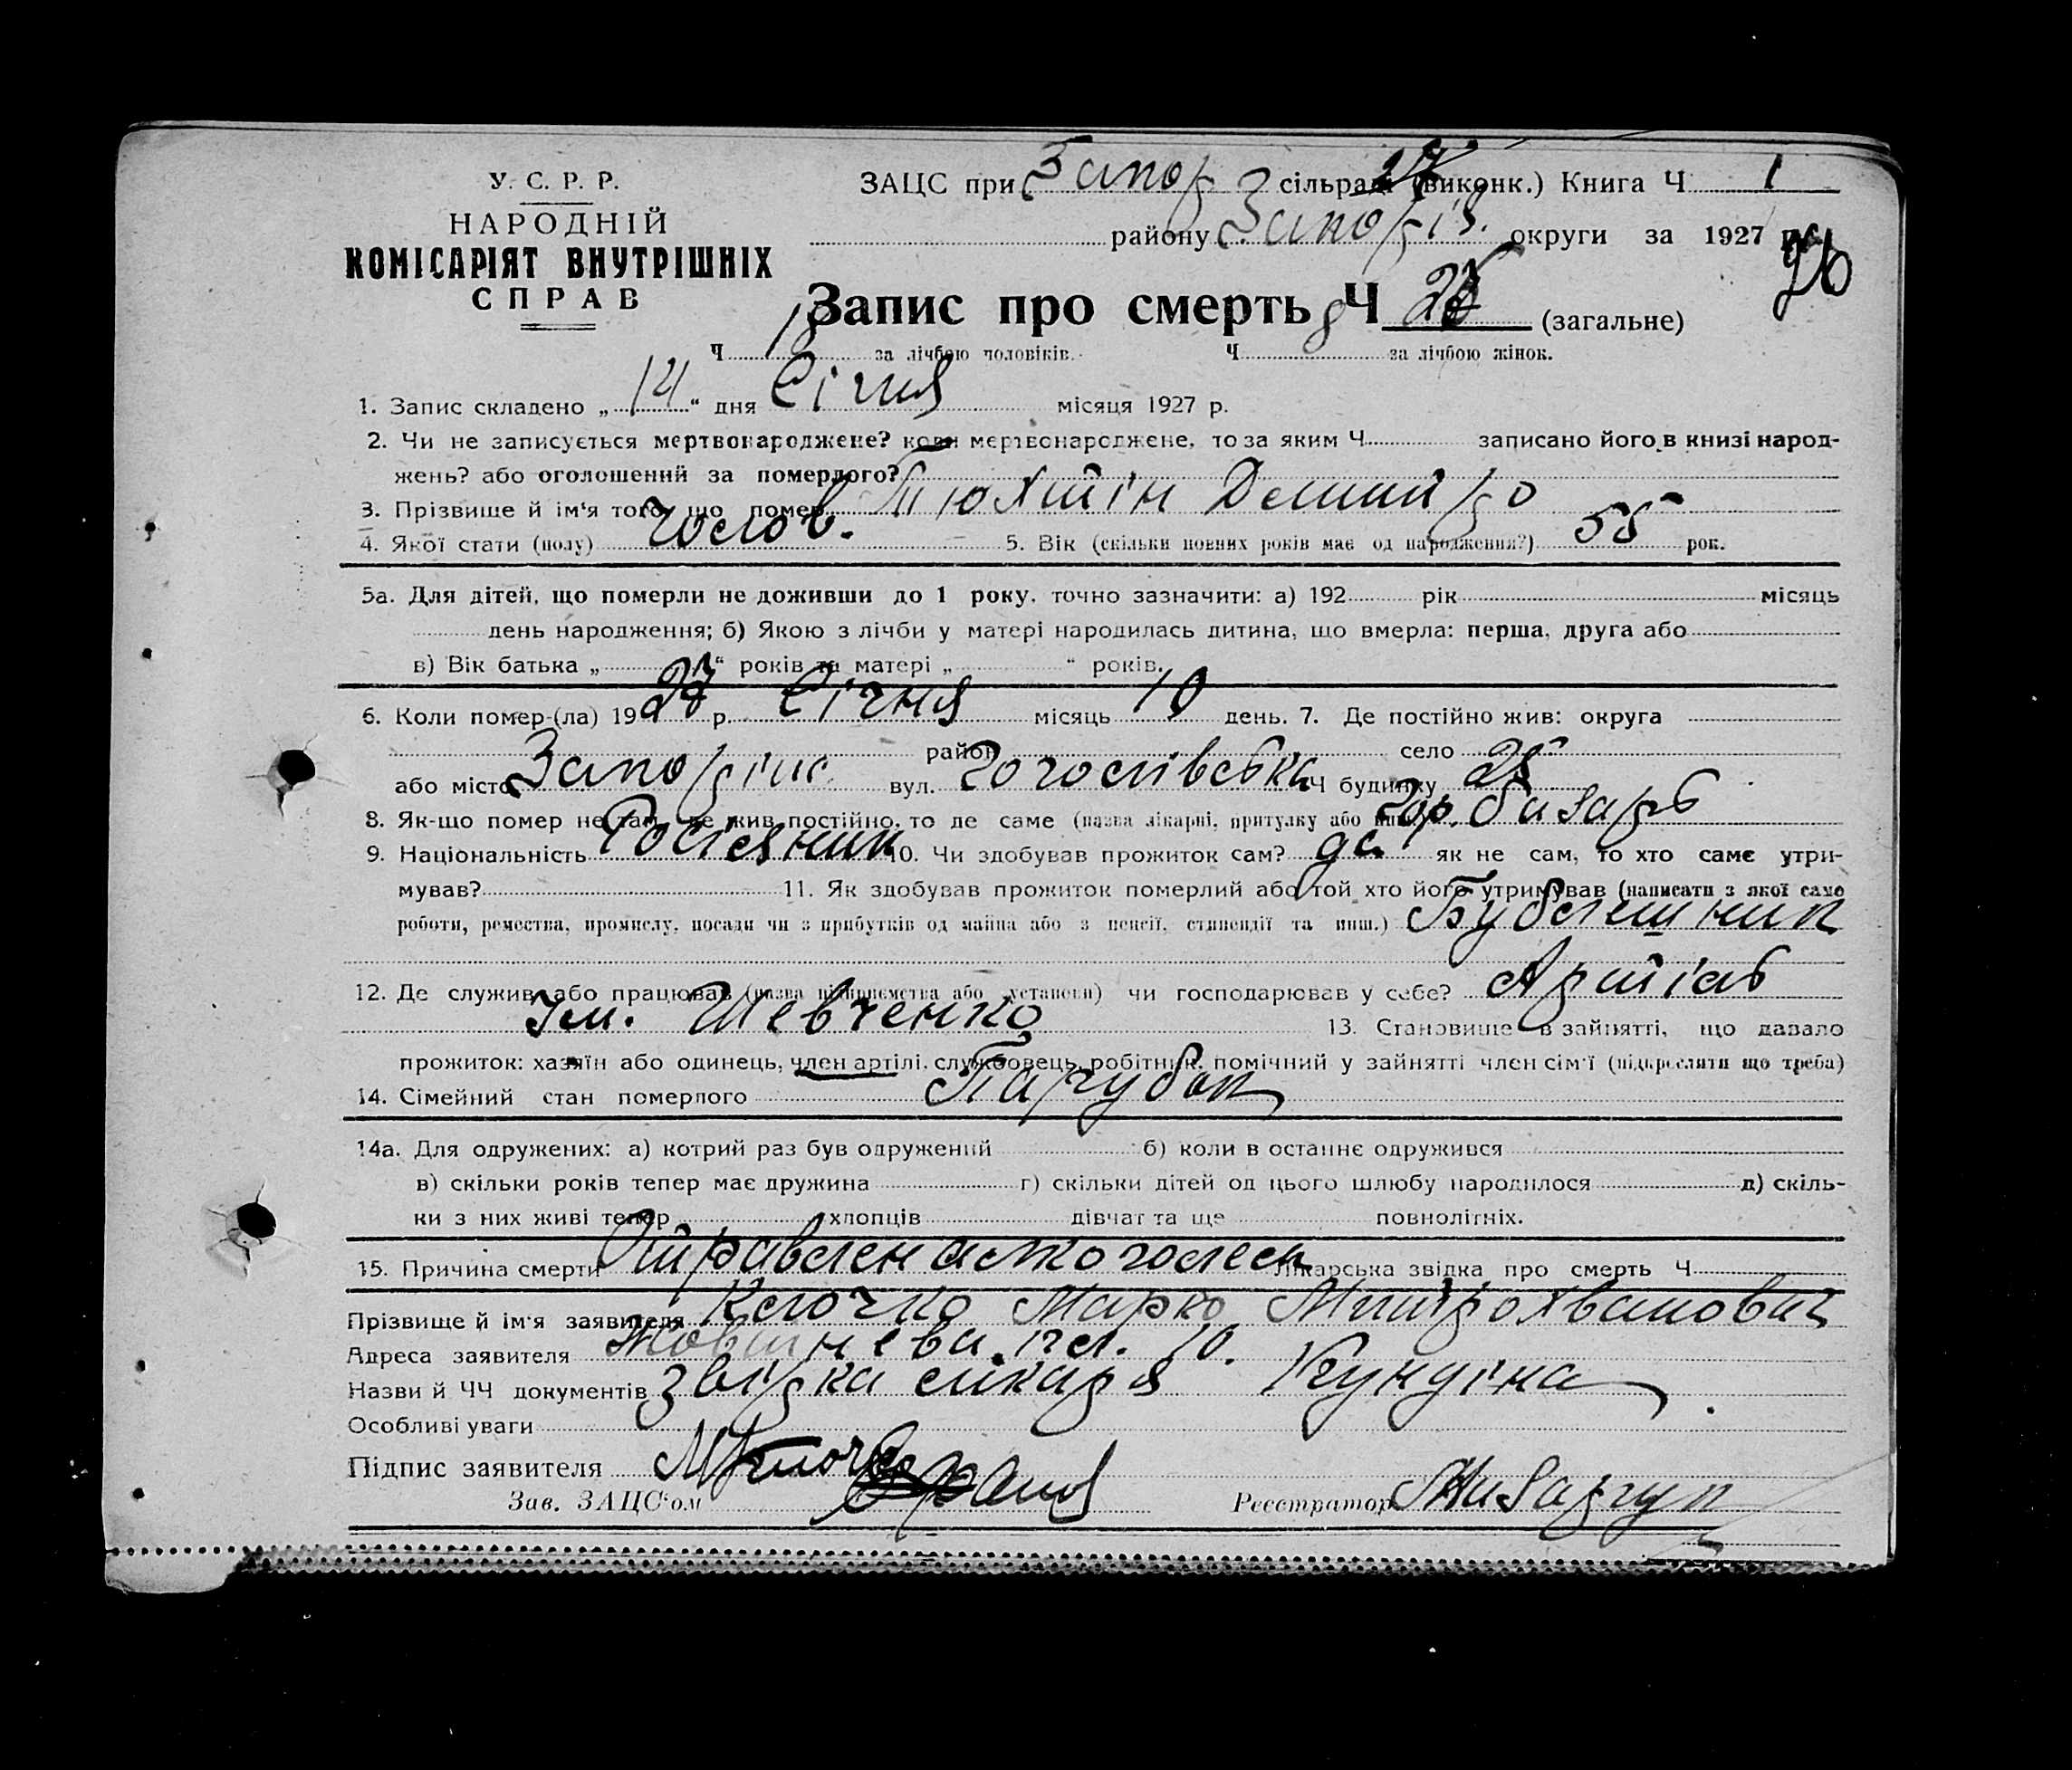 У. С. Р. Р.
НАРОДНІЙ
КОМІСАРІЯТ ВНУТРІШНІХ
СПРАВ
ЗАЦС при Запор сільраді (виконк.) Книга Ч 1
району Запоріз. округи за 1927 р.
Запис про смерть Ч (загальне)
Ч 18 за лічбою чоловіків. Ч 8 за лічбою жінок.
1. Запис складено „ 14 “ дня Січня місяця 1927 р.
2. Чи не записується мертвонароджене? коли мертвонароджене, то за яким Ч записано його в книзі народ-
жень? або оголошений за померлого?
3. Прізвище й ім'я того, що помер Тюхтін Дмитро
4. Якої статі (полу) чолов. 5. Вік (скільки повних років має од народження?) 55 рок.
5а. Для дітей, що померли не доживши до 1 року, точно зазначити: а) 192 рік місяць
день народження; б) Якою з лічби у матері народилась дитина, що вмерла: перша, друга або
в) Вік батька „ “ років та матері „ “ років.
6. Коли помер-(ла) 1927 р. Січня місяць 10 день. 7. Де постійно жив: округа
район село
або місто Запоріжжя вул. Гоголівська Ч будинку 25
8. Як-що помер не там, де жив постійно, то де саме (назва лікарні, притулку або инш.) Гор. базарь
9. Національність Росіянин 10. Чи здобував прожиток сам? да як не сам, то хто саме утри-
мував? 11. Як здобував прожиток померлий або той хто його утримував (написати з якої само
роботи, ремества, промислу, посади чи з прибутків од майна або з пенсії, стипендії та инш.) Бублешник
12. Де служив або працював (назва підприємства або установи) чи господарював у себе? Артіль
Ім. Шевченко 13. Становище в зайнятті, що давало
прожиток: хазяїн або одинець, член артілі, службовець, робітник, помічний у зайнятті член сім'ї (підкреслити що треба)
14. Сімейний стан померлого Парубок
14а. Для одружених: а) котрий раз був одружений б) коли в останнє одружився
в) скільки років тепер має дружина г) скільки дітей од цього шлюбу народилося д) скіль-
ки з них живі тепер хлопців дівчат та ще повнолітніх.
15. Причина смерти Отравлен алкоголем Лікарська звідка про смерть Ч
Прізвище й ім'я заявителя Клочко Марко Митрохванович
Адреса заявителя Жовтнева пл. 10.
Назви й ЧЧ документів звідка лікаря Кундіна
Особливі уваги
Підпис заявителя
Зав. ЗАЦС'ом Реєстратор